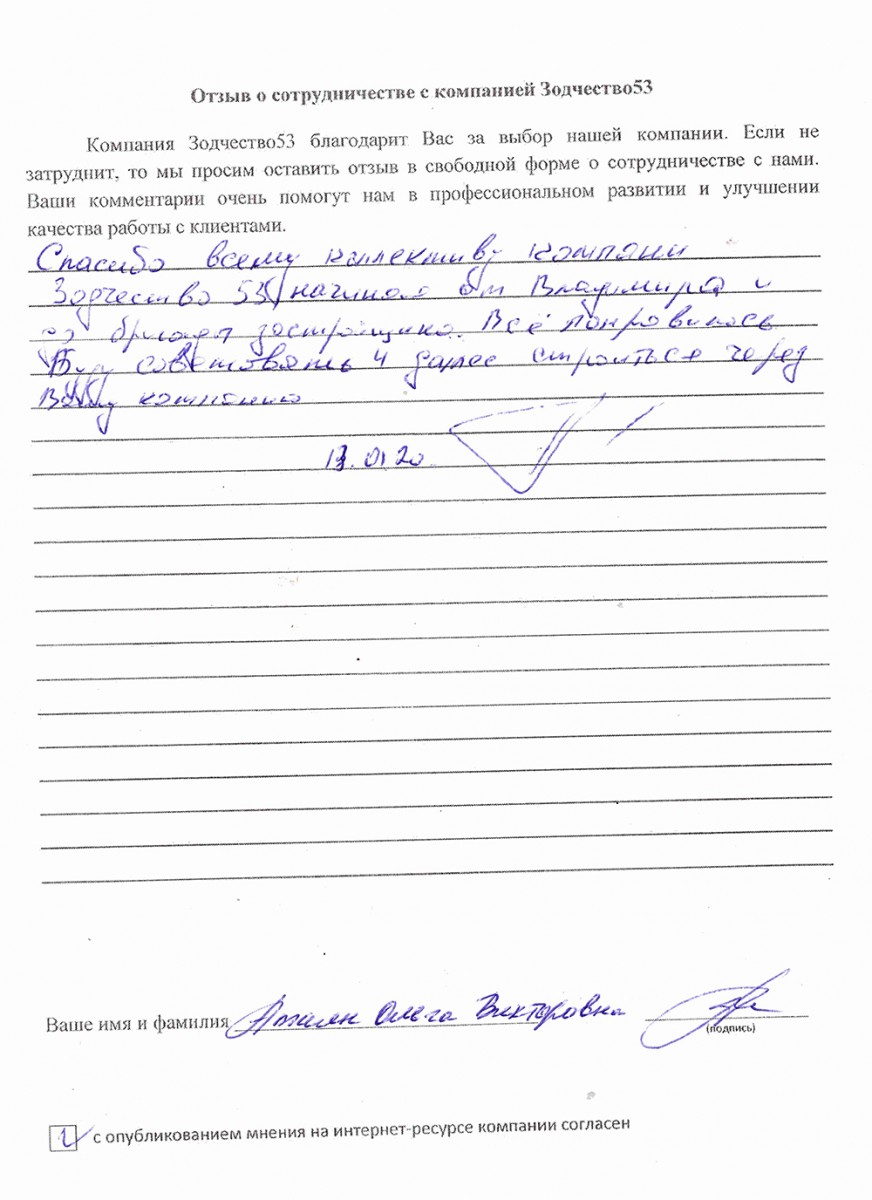 Отзыв о сотрудничестве с компанией Зодчество53
Компания Зодчество53 благодарит Вас за выбор нашей компании. Если не
затруднит, то мы просим оставить отзыв в свободной форме о сотрудничестве с нами.
Ваши комментарии очень помогут нам в профессиональном развитии и улучшении
качества работы с клиентами.
Спасибо всему коллективу компани
Зодчество 53, начиная от Владимира и
бригады застройщика. Всё понравилось
Буду советовать и далее строиться через
Вашу компанию
13.01.20
Ваше имя и фамилия Ольга Викторовна
(подпись)
с опубликованием мнения на интернет-ресурсе компании согласен